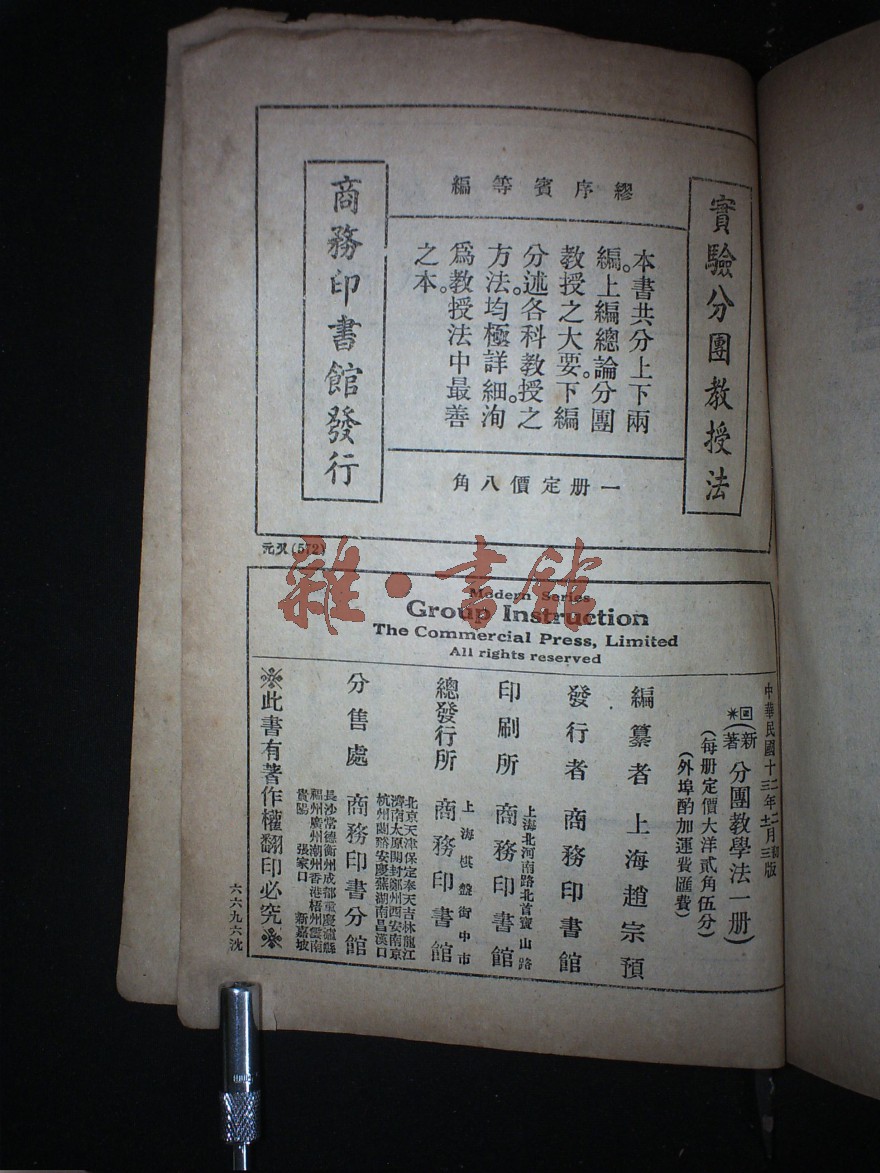 實驗分團教授法
繆序賓等編
本書共分上下兩
編。上編總論分團
教授之大要。下編
分述各科教授之
方法。均極詳細。洵
爲教授法中最善
之本。
一册定價八角
商務印書館發行
元又(572)
雜·書館
Modern Series
Group Instruction
The Commercial Press, Limited
All rights reserved
中華民國十二年二月初版
三年十一月三版
回(新著)分團教學法一册)
(每册定價大洋貳角伍分)
(外埠酌加運費匯費)
編纂者 上海趙宗預
發行者 商務印書館
上海北河南路北首寶山路
印刷所 商務印書館
上海棋盤街中市
總發行所 商務印書館
分售處 商務印書分館
北京天津保定奉天吉林龍江
濟南太原開封鄭州西安南京
杭州蘭谿安慶蕪湖南昌漢口
長沙常德衡州成都重慶瀘縣
福州廣州潮州香港梧州雲南
貴陽 張家口 新嘉坡
※此書有著作權翻印必究※
六六九六沈